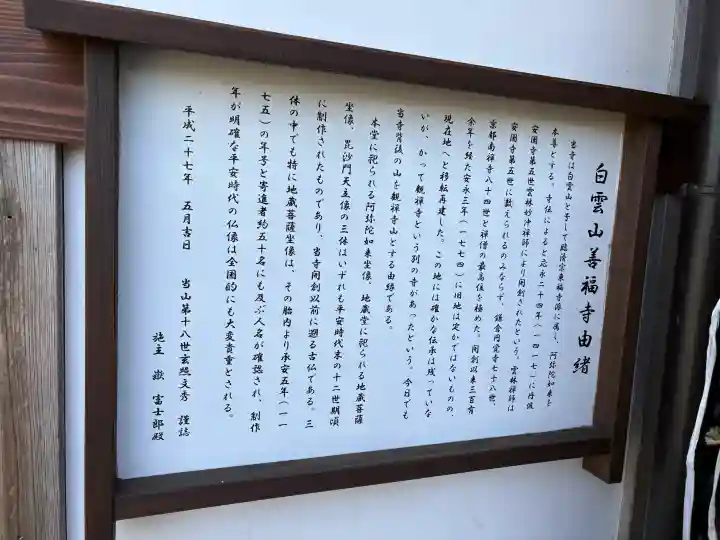 白雲山善福寺由緒
当寺は白雲山と号して臨済宗東福寺派に属し、阿弥陀如来を
本尊とする。寺伝によると応永二十四年(一四一七)に丹波
安国寺第五世雲林妙沖禅師により開創されたという。雲林禅師は
安国寺第五世に数えられるのみならず、鎌倉円覚寺七十八世、
京都南禅寺八十四世と禅僧の最高位を極めた。開創以来三百有
余年を経た安永三年(一七七四)に旧地は定かではないものの、
現在地へと移転再建した。この地には確かな伝承は残っていな
いが、かつて観禅寺という別の寺があったという。今日でも
当寺背後の山を観禅寺山とする由緒である。
本堂に祀られる阿弥陀如来坐像、地蔵堂に祀られる地蔵菩薩
坐像、毘沙門天立像の三体はいずれも平安時代末の十二世期頃
に制作されたものであり、当寺開創以前に遡る古仏である。三
体の中でも特に地蔵菩薩坐像は、その胎内より承安五年(一一
七五)の年号と寄進者約五十名にも及ぶ人名が確認され、制作
年が明確な平安時代の仏像は全国的にも大変貴重とされる。
平成二十七年 五月吉日 当山第十八世玄照文秀 謹誌
施主 嶽 富士郎殿